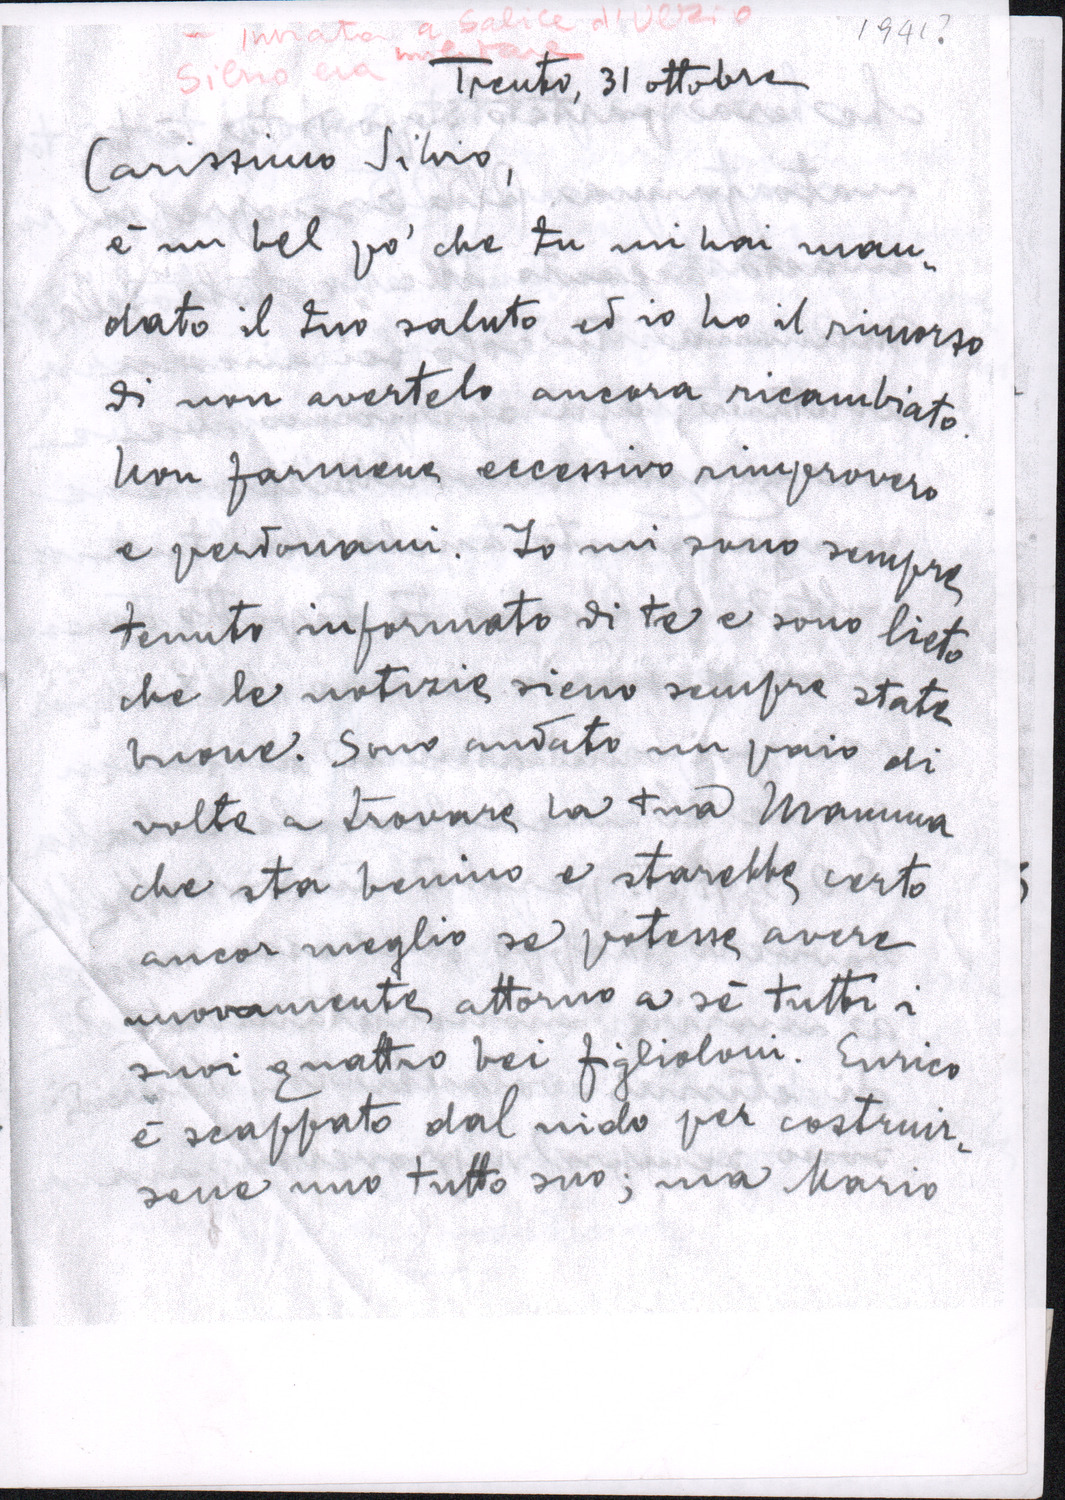 - Inviata a Salice d'Ulzio
1941?
Silvio era militare
Trento, 31 ottobre
Carissimo Silvio,
è un bel po' che tu mi hai man-
dato il tuo saluto ed io ho il rimorso
di non avertelo ancora ricambiato.
Non farmene eccessivo rimprovero
e perdonami. Io mi sono sempre
tenuto informato di te e sono lieto
che le notizie sieno sempre state
buone. Sono andato un paio di
volte a trovare la tua Mamma
che sta benino e starebbe certo
ancor meglio se potesse avere
nuovamente attorno a sé tutti i
suoi quattro bei figlioloni. Enrico
è scappato dal nido per costruir-
sene uno tutto suo; ma Mario